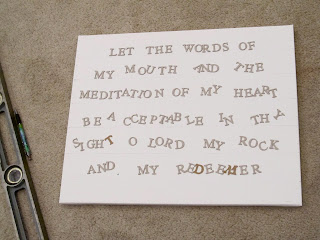 LET THE WORDS OF
MY MOUTH AND THE
MEDITATION OF MY HEART
BE ACCEPTABLE IN THY
SIGHT O LORD MY ROCK
AND MY REDEEMER